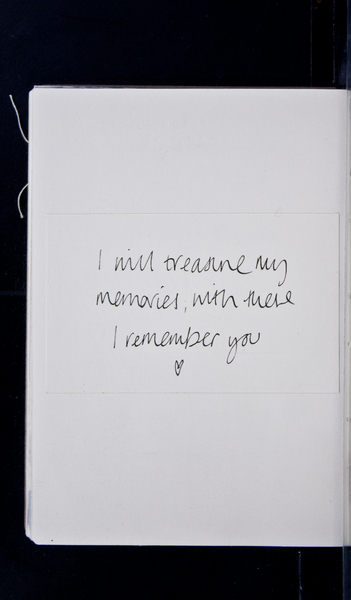 I will treasure my
memories, with these
I remember you
♡